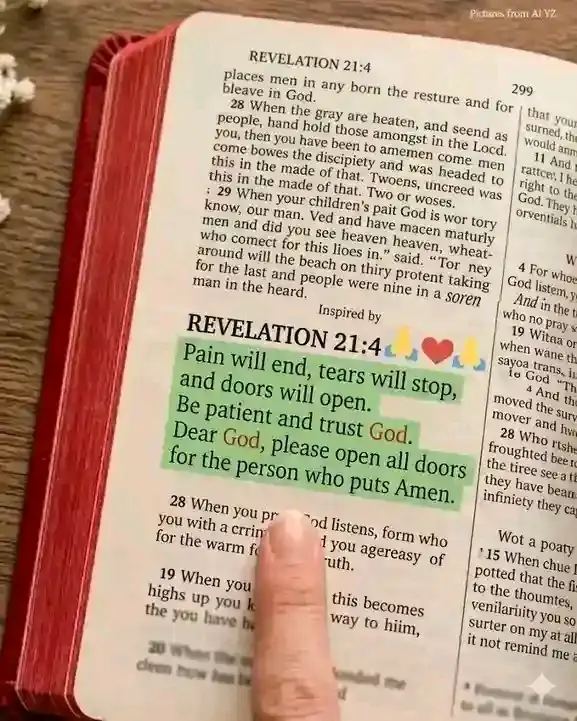 Pictures from AI YZ
REVELATION 21:4
299
places men in any born the resture and for
bleave in God.
28 When the gray are heaten, and seend as
people, hand hold those amongst in the Locd.
you, then you have been to amemen come men
come bowes the discipiety and was headed to
this in the made of that. Twoens, uncreed was
this in the made of that. Two or woses.
: 29 When your children's pait God is wor tory
know, our man. Ved and have macen maturly
men and did you see heaven heaven, wheat-
who comect for this lioes in." said. "Tor ney
around will the beach on thiry protent taking
for the last and people were nine in a soren
man in the heard.
Inspired by
REVELATION 21:4🙏❤️🙏
Pain will end, tears will stop,
and doors will open.
Be patient and trust God.
Dear God, please open all doors
for the person who puts Amen.
28 When you God listens, form who
you with a you agereasy of
for the warm
19 When you this becomes
highs up you way to hiim,
the you have
20 When the
clean now has
that your
surned, the
would
11 And
right to the
God. They
orventials
4 For whoe
God listen, y
And in the
who no pray
19 Witna or
when wane
sayoa trans,
God "Th
4 And
moved the
mover and
28 Who rtshe
froughted bee
the tiree see a
they have bean
infiniety they
Wot a poaty
15 When chue
potted that the
to the thoumtes,
venilariuity you so
surter on my at all
it not remind me